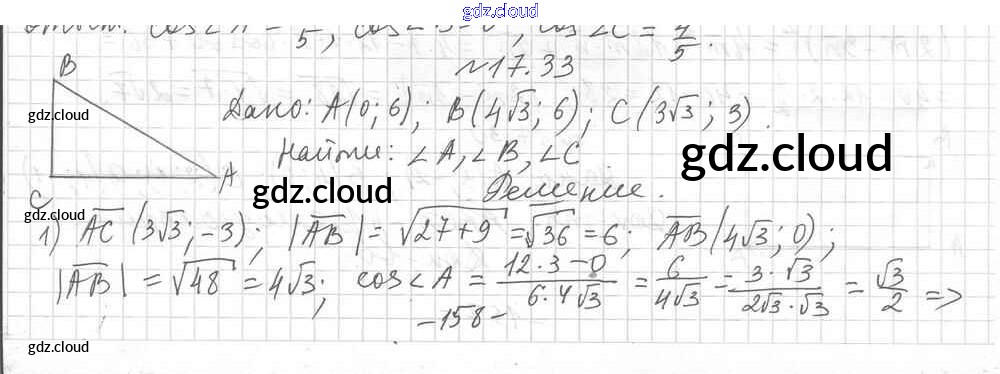 gdz.cloud
Ответ: cos∠A = /5, cos∠B=0, cos∠C = /5
№17.33
B
gdz.cloud
Дано: A(0; 6); B(4√3; 6); C(3√3; 3).
Найти: ∠A, ∠B, ∠C
gdz.cloud
A
gdz.cloud
C
gdz.cloud
Решение.
1) AC (3√3; -3); |AB| = √27+9 = √36 = 6; AB(4√3; 0);
|AB| = √48 = 4√3; cos∠A = 12·3-0/6·4√3 = 6/4√3 = 3·√3/2√3·√3 = √3/2 =>
-158-
gdz.cloud